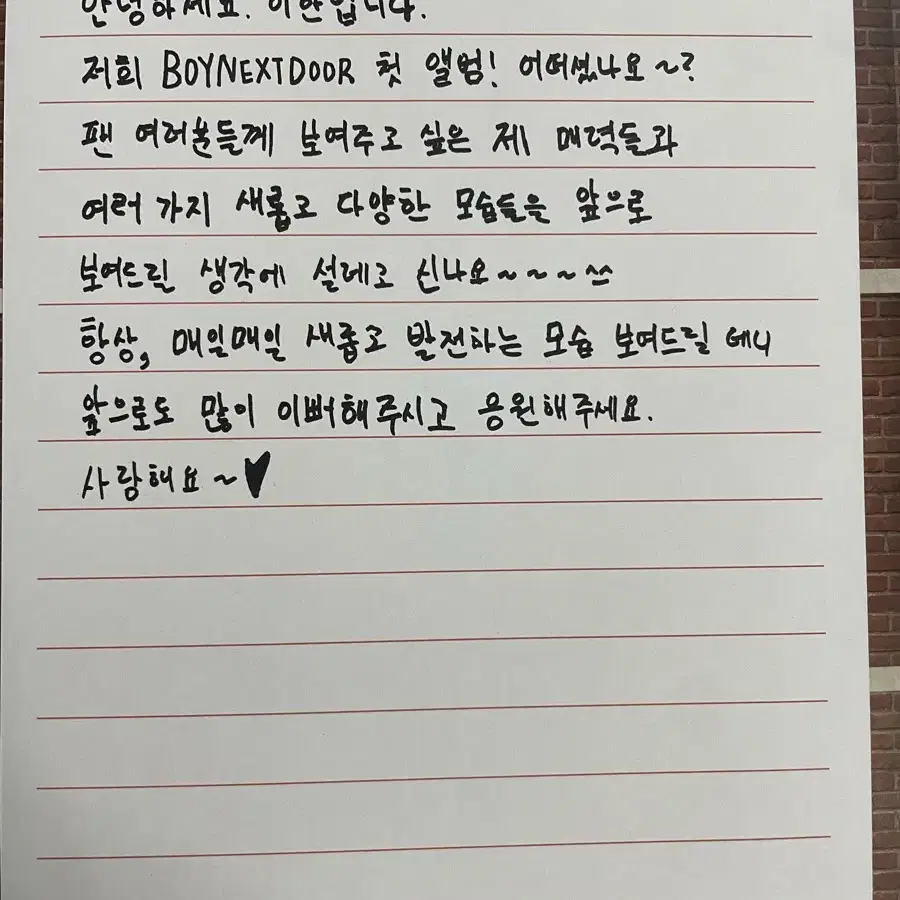 안녕하세요. 이한입니다.
저희 BOYNEXTDOOR 첫 앨범! 어떠셨나요~?
팬 여러분들께 보여주고 싶은 제 매력들과
여러 가지 새롭고 다양한 모습들을 앞으로
보여드릴 생각에 설레고 신나요~~~ㅆ
항상, 매일매일 새롭고 발전하는 모습 보여드릴 테니
앞으로도 많이 이뻐해주시고 응원해주세요.
사랑해요~♥